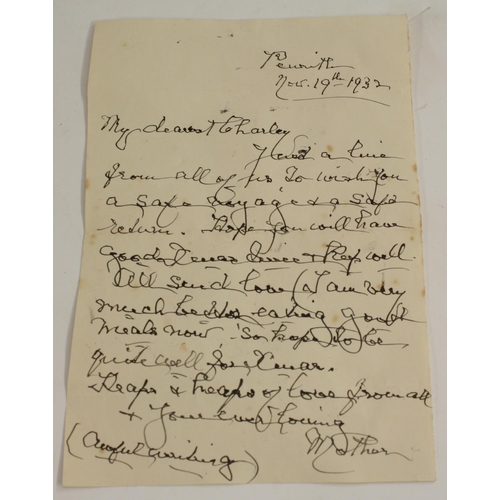 Penrith
Nov. 19th 1932
My dearest Charley
Just a line
from all of us to wish you
a safe voyage & a safe
return. Hope you will have
good Xmas & keep well.
All send love (I am very
much better eating good
meals now so hope to be
quite well for Xmas.
Heaps & heaps of love from all
& Your ever loving
Mother
(awful writing)